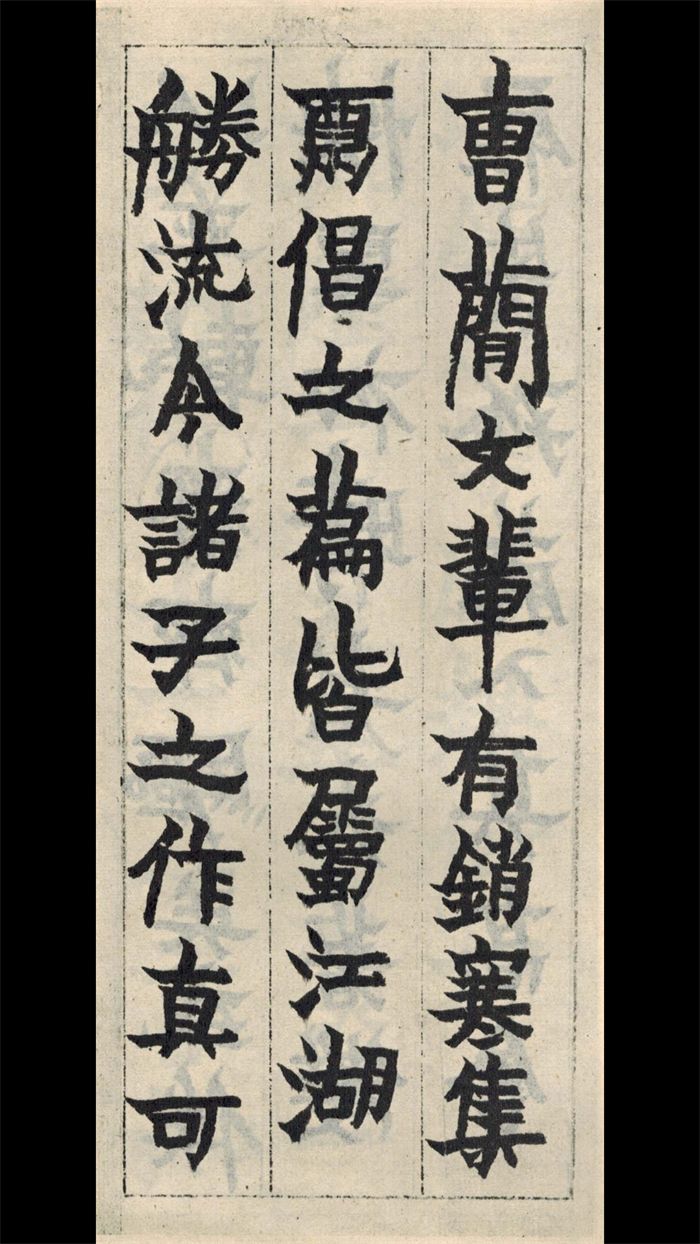 曺蕑女輩有銷寒集
倡之萹皆屬江湖
勝流今諸子之作真可